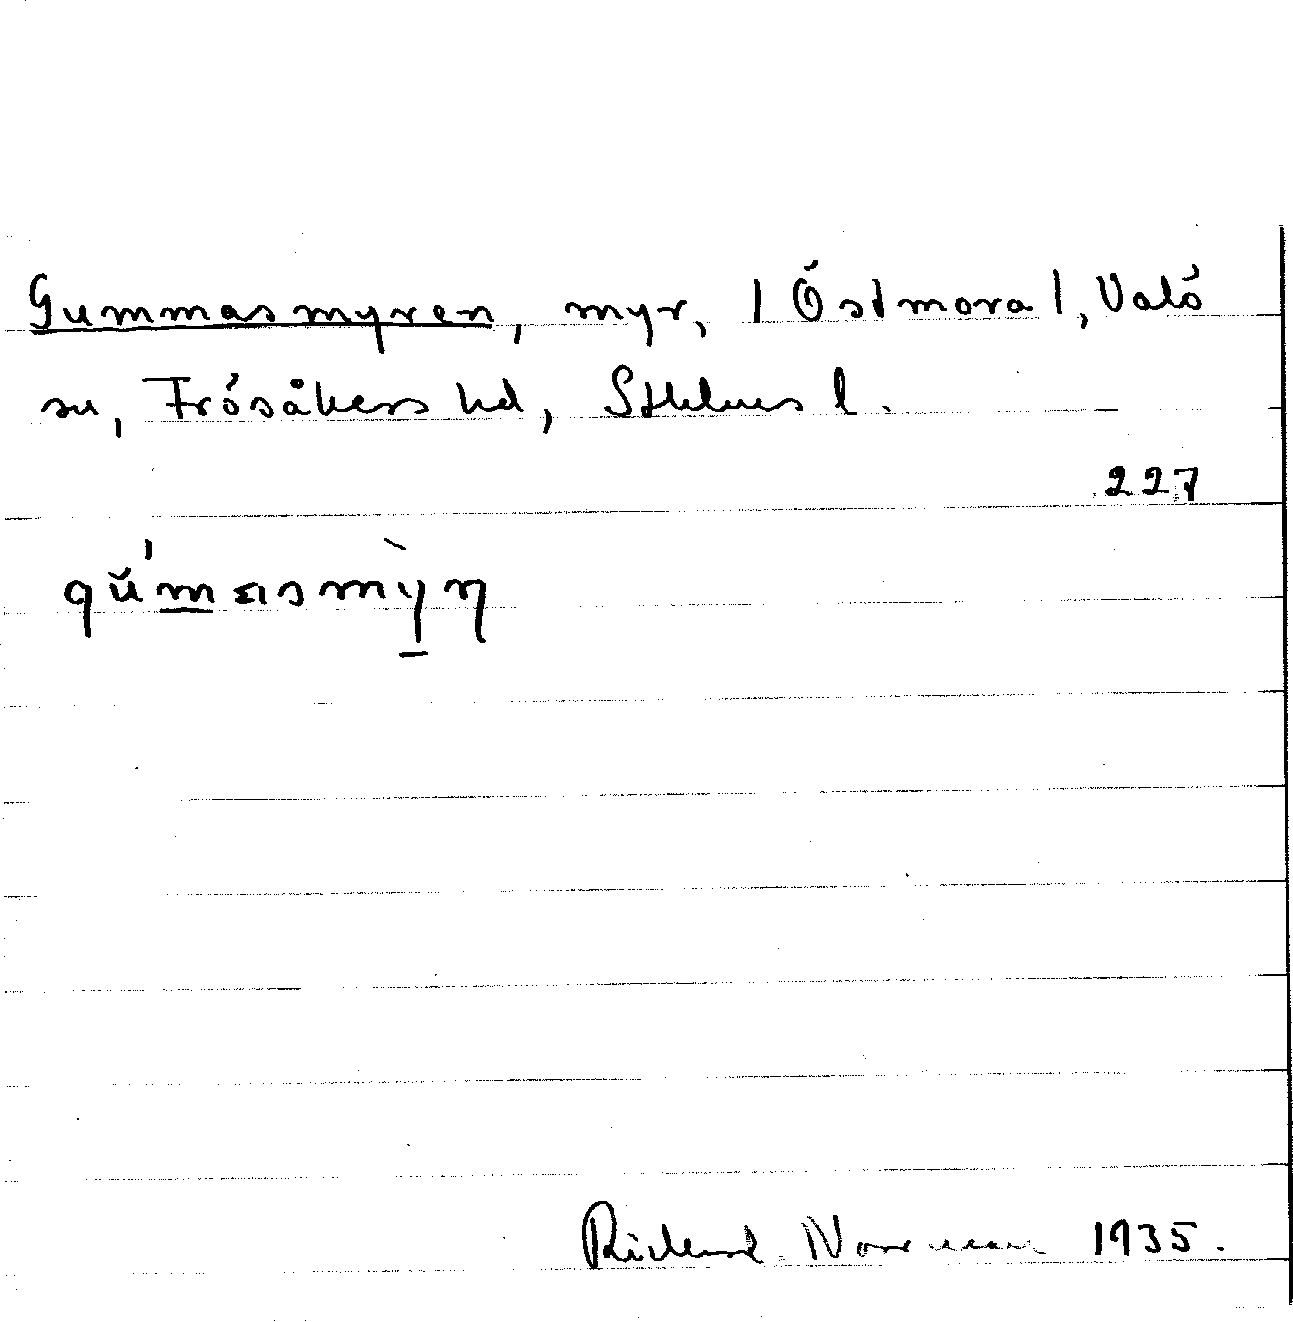 Gummasmyren, myr, | Östmora |, Valö
sn, Frösåkers hd, Sthlms l.
227
gúmasmỳn̥
Richard Norrman 1935.